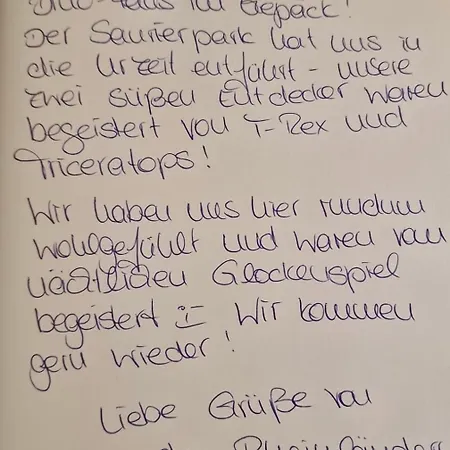 im Gepäck!
Der Saurierpark hat uns in
die Urzeit entführt - unsere
zwei süßen Entdecker waren
begeistert von T-Rex und
Triceratops!
Wir haben uns hier rundum
wohlgefühlt und waren vom
nächtlichen Glockenspiel
begeistert :-) Wir kommen
gern wieder!
Liebe Grüße von